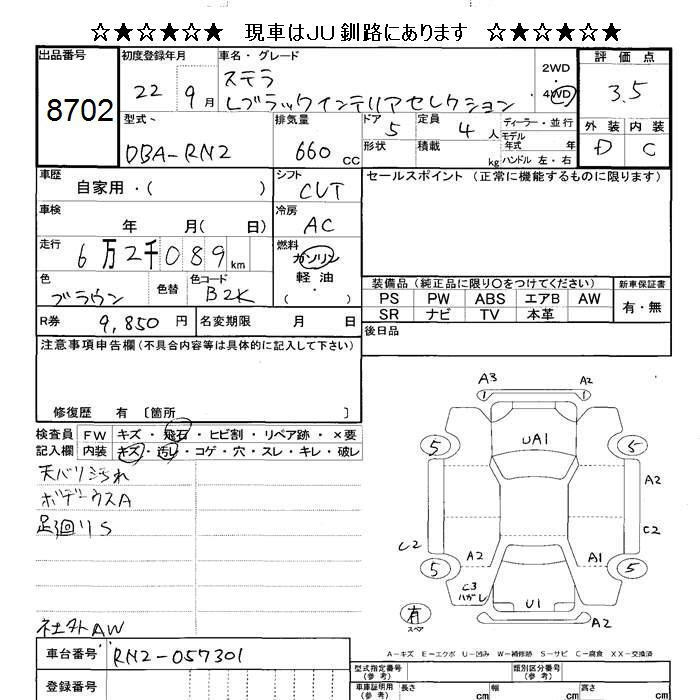 ☆★☆★☆★ 現車はJU釧路にあります ☆★☆★☆★
出品番号 初度登録年月 車名・グレード 評価点
8702 22年9月 ステラ 2WD 3.5
Lブラックインテリアセレクション 4WD
型式 排気量 ドア 定員 ディーラー・並行 外装 内装
DBA-RN2 660cc 5 4人 モデル年式 年 D C
形状 積載 kg ハンドル 左・右
車歴 シフト セールスポイント (正常に機能するものに限ります)
自家用・( ) CVT
車検 冷房
年 月( 日) AC
走行 燃料
6万2千089km ガソリン
色 色替 色コード 軽油
ブラウン B2K ( ・ )
装備品 (純正品に限り○をつけてください) 新車保証書
PS PW ABS エアB AW 有・無
SR ナビ TV 本革
R券 9,850円 名変期限 月 日 後日品
注意事項申告欄(不具合内容等は具体的に記入して下さい)
修復歴 有 〔箇所 〕
検査員 FW キズ・飛石・ヒビ割・リペア跡・×要
記入欄 内装 キズ・汚レ・コゲ・穴・スレ・キレ・破レ
天バリ汚れ
ボデーウスA
足廻りS
社外AW
A3 A2
1 1
UA1
5 5
A2
C2 C2
A2 A1
5 5
C3
ハガレ
U1
有 A2
スペア
A-キズ E-エクボ U-凹み W-補修跡 S-サビ C-腐食 XX-交換済
車台番号 RN2-057301
型式指定番号 類別区分番号
登録番号 車庫証明用(参考) 長さ cm 幅 cm 高さ cm
(参考) (参考)